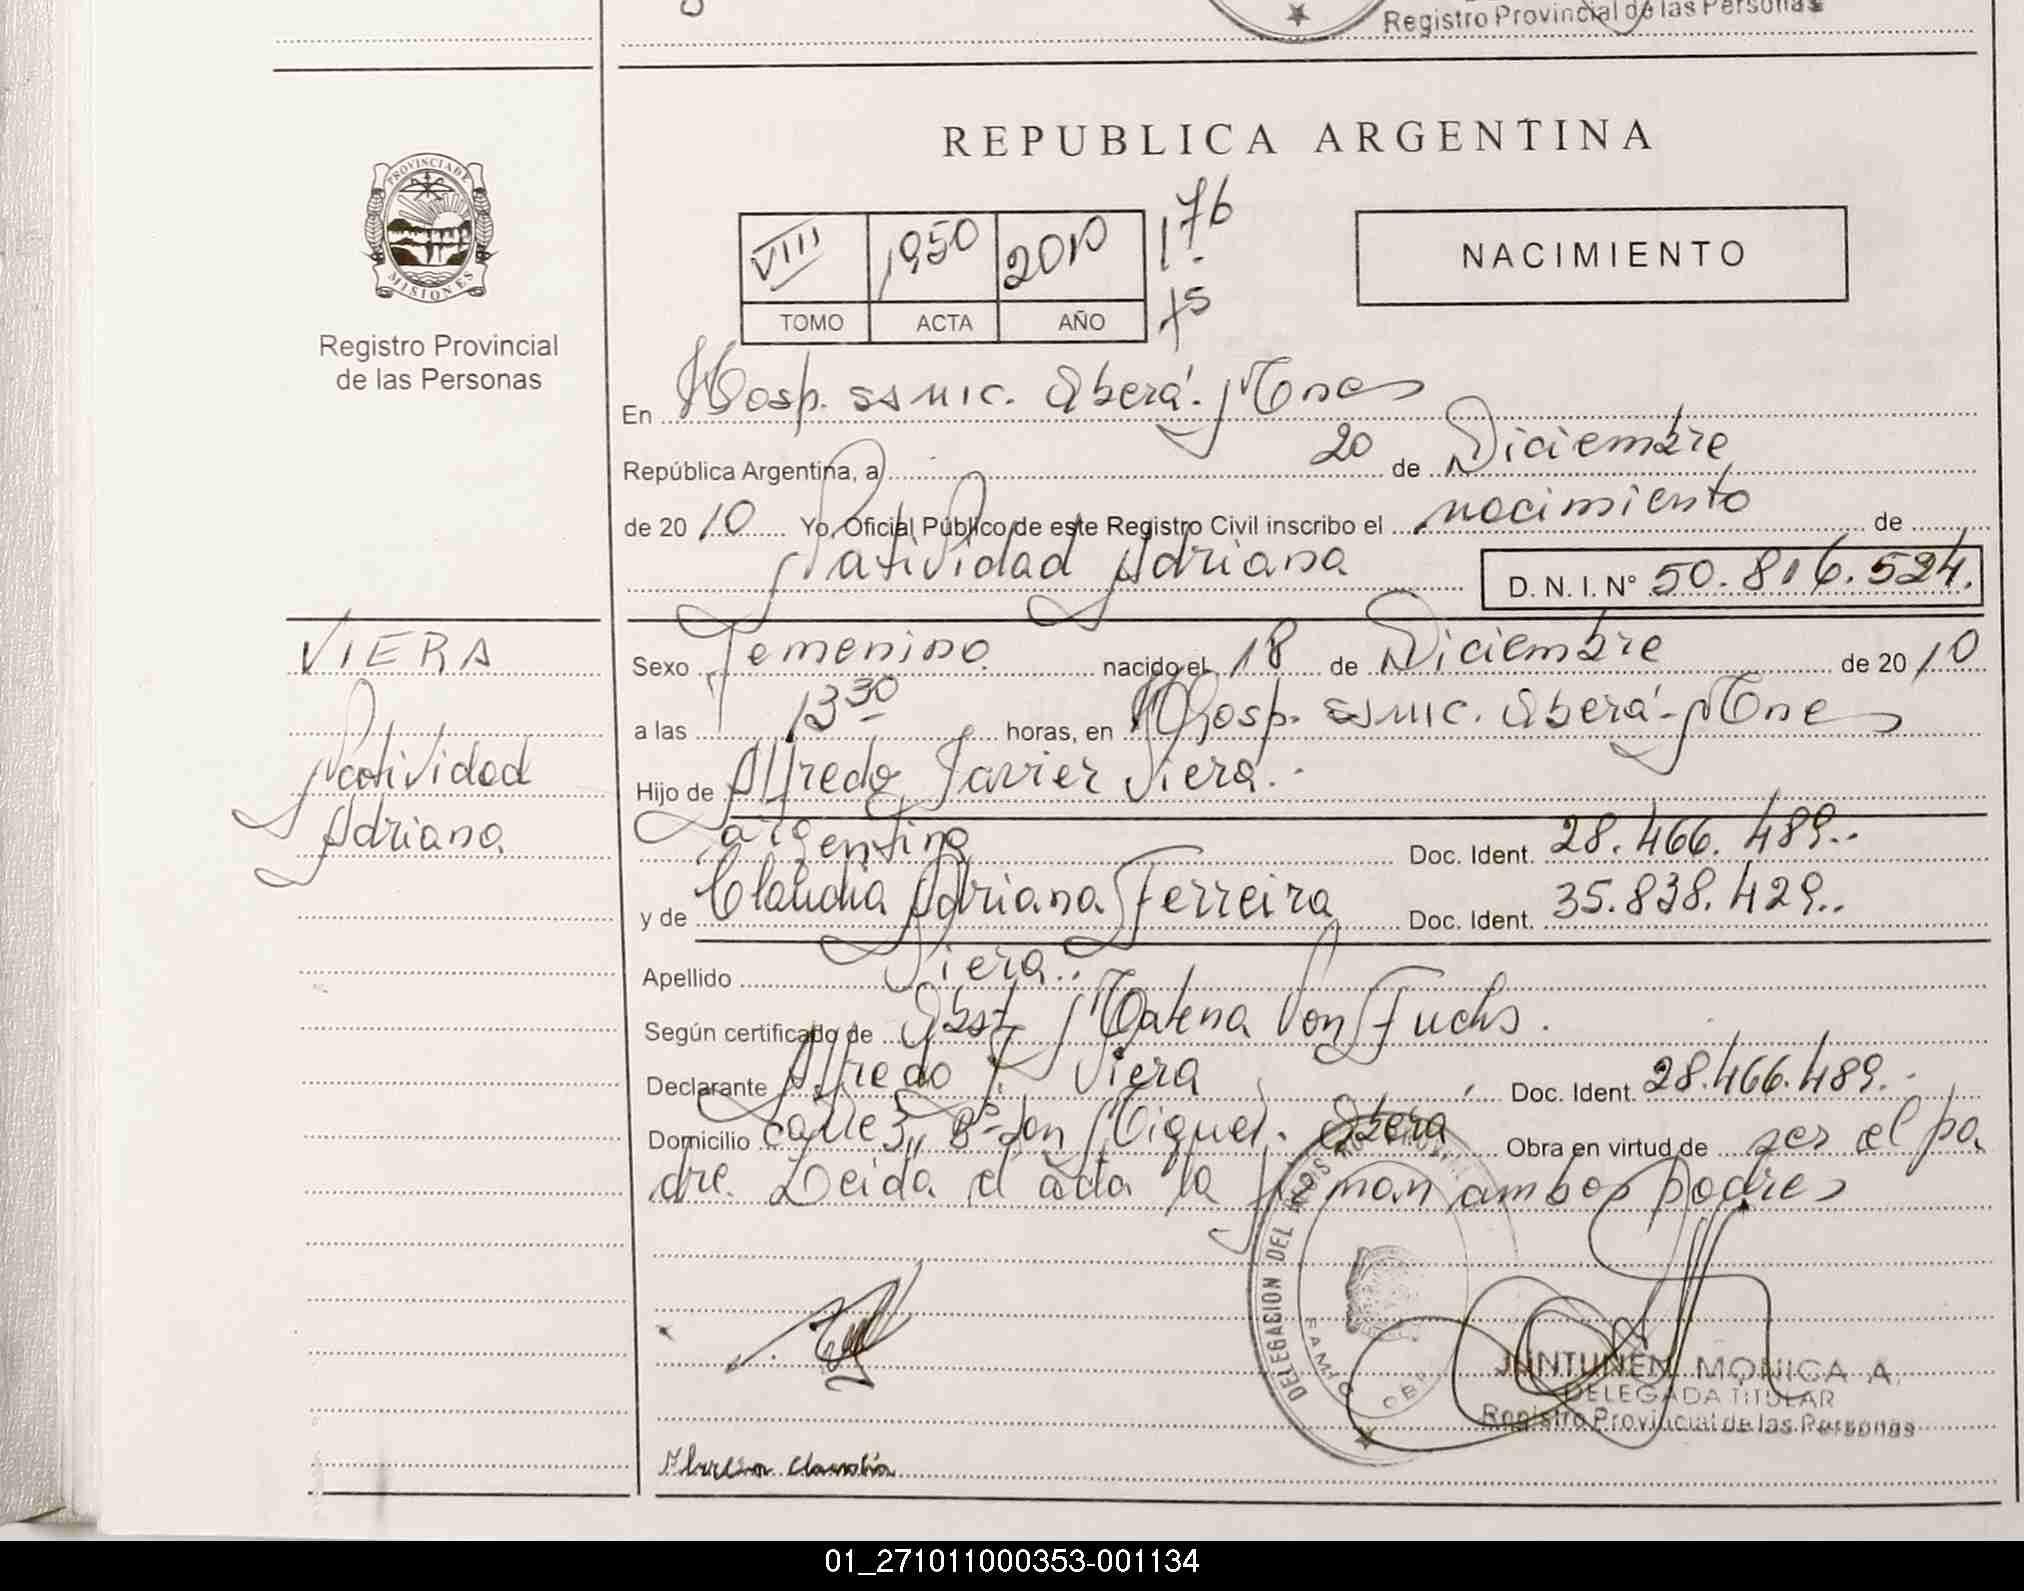 Registro Provincial de las Personas
PROVINCIA DE
MISIONES
Registro Provincial
de las Personas
REPUBLICA ARGENTINA
VIII 1950 2010
TOMO ACTA AÑO
176
75
NACIMIENTO
En Hosp. SSMIC. Oberá. Mnes
República Argentina, a 20 de Diciembre
de 2010 Yo, Oficial Público de este Registro Civil inscribo el nacimiento de
Natividad Adriana D. N. I. Nº 50.816.524.
VIERA
Natividad
Adriana
Sexo Femenino nacido el 18 de Diciembre de 2010
a las 13 30 horas, en Hosp. SSMIC. Oberá - Mnes
Hijo de Alfredo Javier Viera.
argentino Doc. Ident. 28.466.489..
y de Claudia Adriana Ferreira Doc. Ident. 35.838.429..
Apellido Viera..
Según certificado de Obst Matena Von Fuchs.
Declarante Alfredo J. Viera Doc. Ident. 28.466.489.
Domicilio calle 3, Bº San Miguel. Oberá Obra en virtud de ser el pa
dre. Leida el acta la firman ambos padres
DELEGACION DEL
JUNTUNEN MONICA A.
DELEGADA TITULAR
Registro Provincial de las Personas
Claudia
01_271011000353-001134